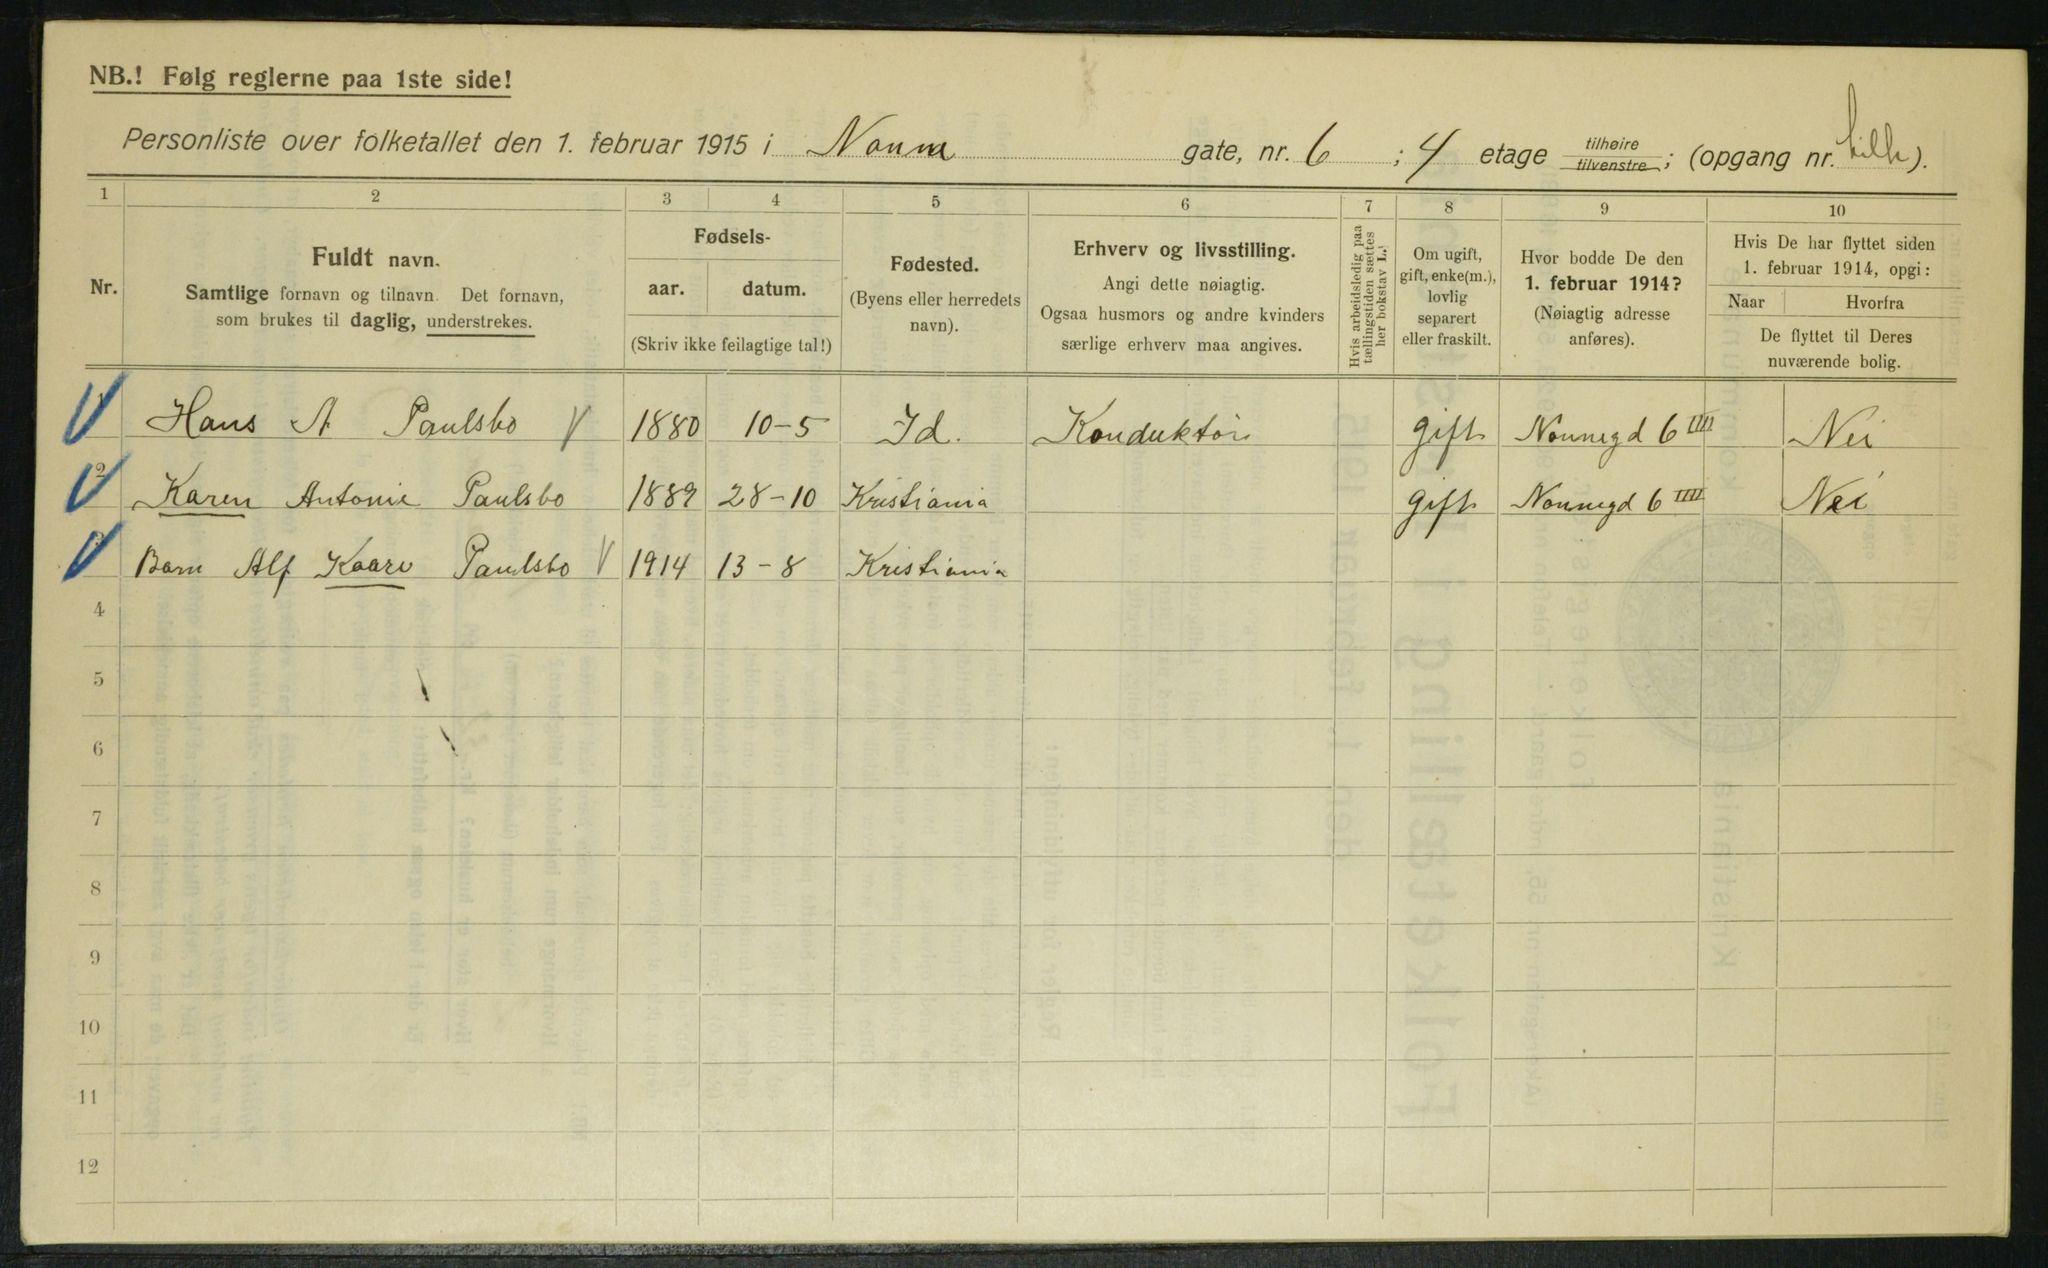 NB.! Følg reglerne paa 1ste side!
Personliste over folketallet den 1. februar 1915 i Nonne gate, nr. 6 ; 4 etage tilhøire tilvenstre ; (opgang nr. ).
1 2 3 4 5 6 7 8 9 10
Nr.
Fuldt navn.
Samtlige fornavn og tilnavn. Det fornavn,
som brukes til daglig, understrekes.
Fødsels-
aar. datum.
(Skriv ikke feilagtige tal!)
Fødested.
(Byens eller herredets
navn).
Erhverv og livsstilling.
Angi dette nøiagtig.
Ogsaa husmors og andre kvinders
særlige erhverv maa angives.
Hvis arbeidsledig paa
tællingstiden sættes
her bokstav L.
Om ugift,
gift, enke(m.),
lovlig
separert
eller fraskilt.
Hvor bodde De den
1. februar 1914?
(Nøiagtig adresse
anføres).
Hvis De har flyttet siden
1. februar 1914, opgi:
Naar Hvorfra
De flyttet til Deres
nuværende bolig.
1 Hans A Paulsbo 1880 10-5 Id. Konduktør gift Nonnegd 6 IIII Nei
2 Karen Antonie Paulsbo 1889 28-10 Kristiania gift Nonnegd 6 IIII Nei
3 Barn Alf Kaare Paulsbo 1914 13-8 Kristiania
4
5
6
7
8
9
10
11
12